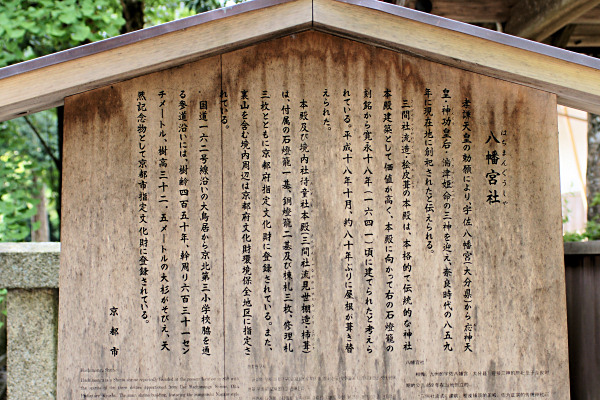 八幡宮社
はちまんぐうしゃ
孝謙天皇の勅願により宇佐八幡宮(大分県)から応神天
皇・神功皇后・湍津姫命の三神を迎え、奈良時代の八五九
年に現在地に創祀されたと伝えられる。
三間社流造・桧皮葺の本殿は、本格的で伝統的な神社
本殿建築として価値が高く、本殿に向かって右の石燈籠の
刻銘から寛永十八年(一六四一)頃に建てられたと考えら
れている。平成十八年十月、約八十年ぶりに屋根が葺き替
えられた。
本殿及び境内社待童社本殿(三間社流見世棚造・柿葺)
は、付属の石燈籠一基、銅燈籠二基及び棟札三枚、修理札
三枚とともに京都府指定文化財に登録されている。また、
裏山を含む境内周辺は京都府文化財環境保全地区に指定さ
れている。
国道一六二号線沿いの大鳥居から京北第三小学校脇を通
る参道沿いには、樹齢四百五十年、幹周り六百三十一セン
チメートル、樹高三十二、五メートルの大杉がそびえ、天
然記念物として京都市指定文化財に登録されている。
京都市
Hachimangu Shrine
八幡宮社